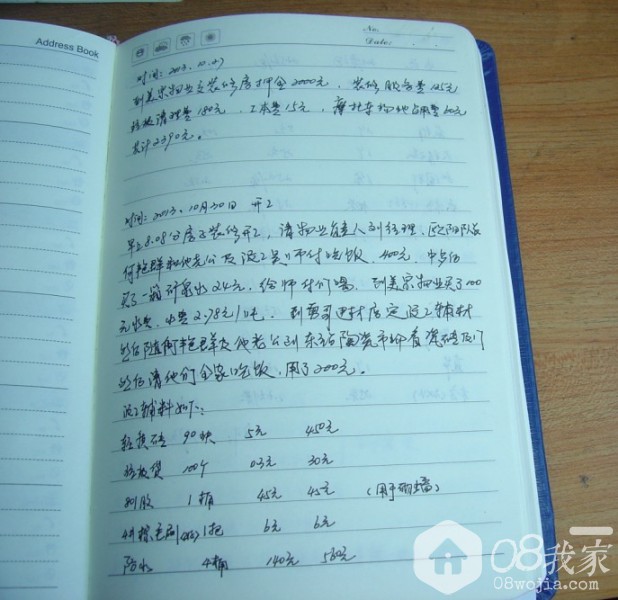 Address Book
No.
Date:
时间：2013.10.27
到美家物业交装修房押金2000元，装修服务费125元
垃圾清理费180元，工本费15元，摩托车场地占用费60元
共计2390元。
时间：2013、10月30日 开工
早上8.08分房子装修开工，请物业负责人刘经理、欧阳队长
何艳群和他老公及泥工师付吃饭，400元，中午后
买了一箱矿泉水24元，给师付们喝，到美家物业买了100
元水费，水费2.78元/吨，到 哥建材店定泥工辅材
然后随何艳群及他老公到东站陶瓷市场看瓷砖及门
然后请他们全家吃饭，用了200元。
泥工辅料如下：
轻质砖 90块 5元 450元
垃圾袋 100个 0.3元 30元
别胶 1桶 45元 45元 （用于 墙）
斜擦毛刷 1把 6元 6元
防水 4桶 140元 560元
08我家
08wojia.com